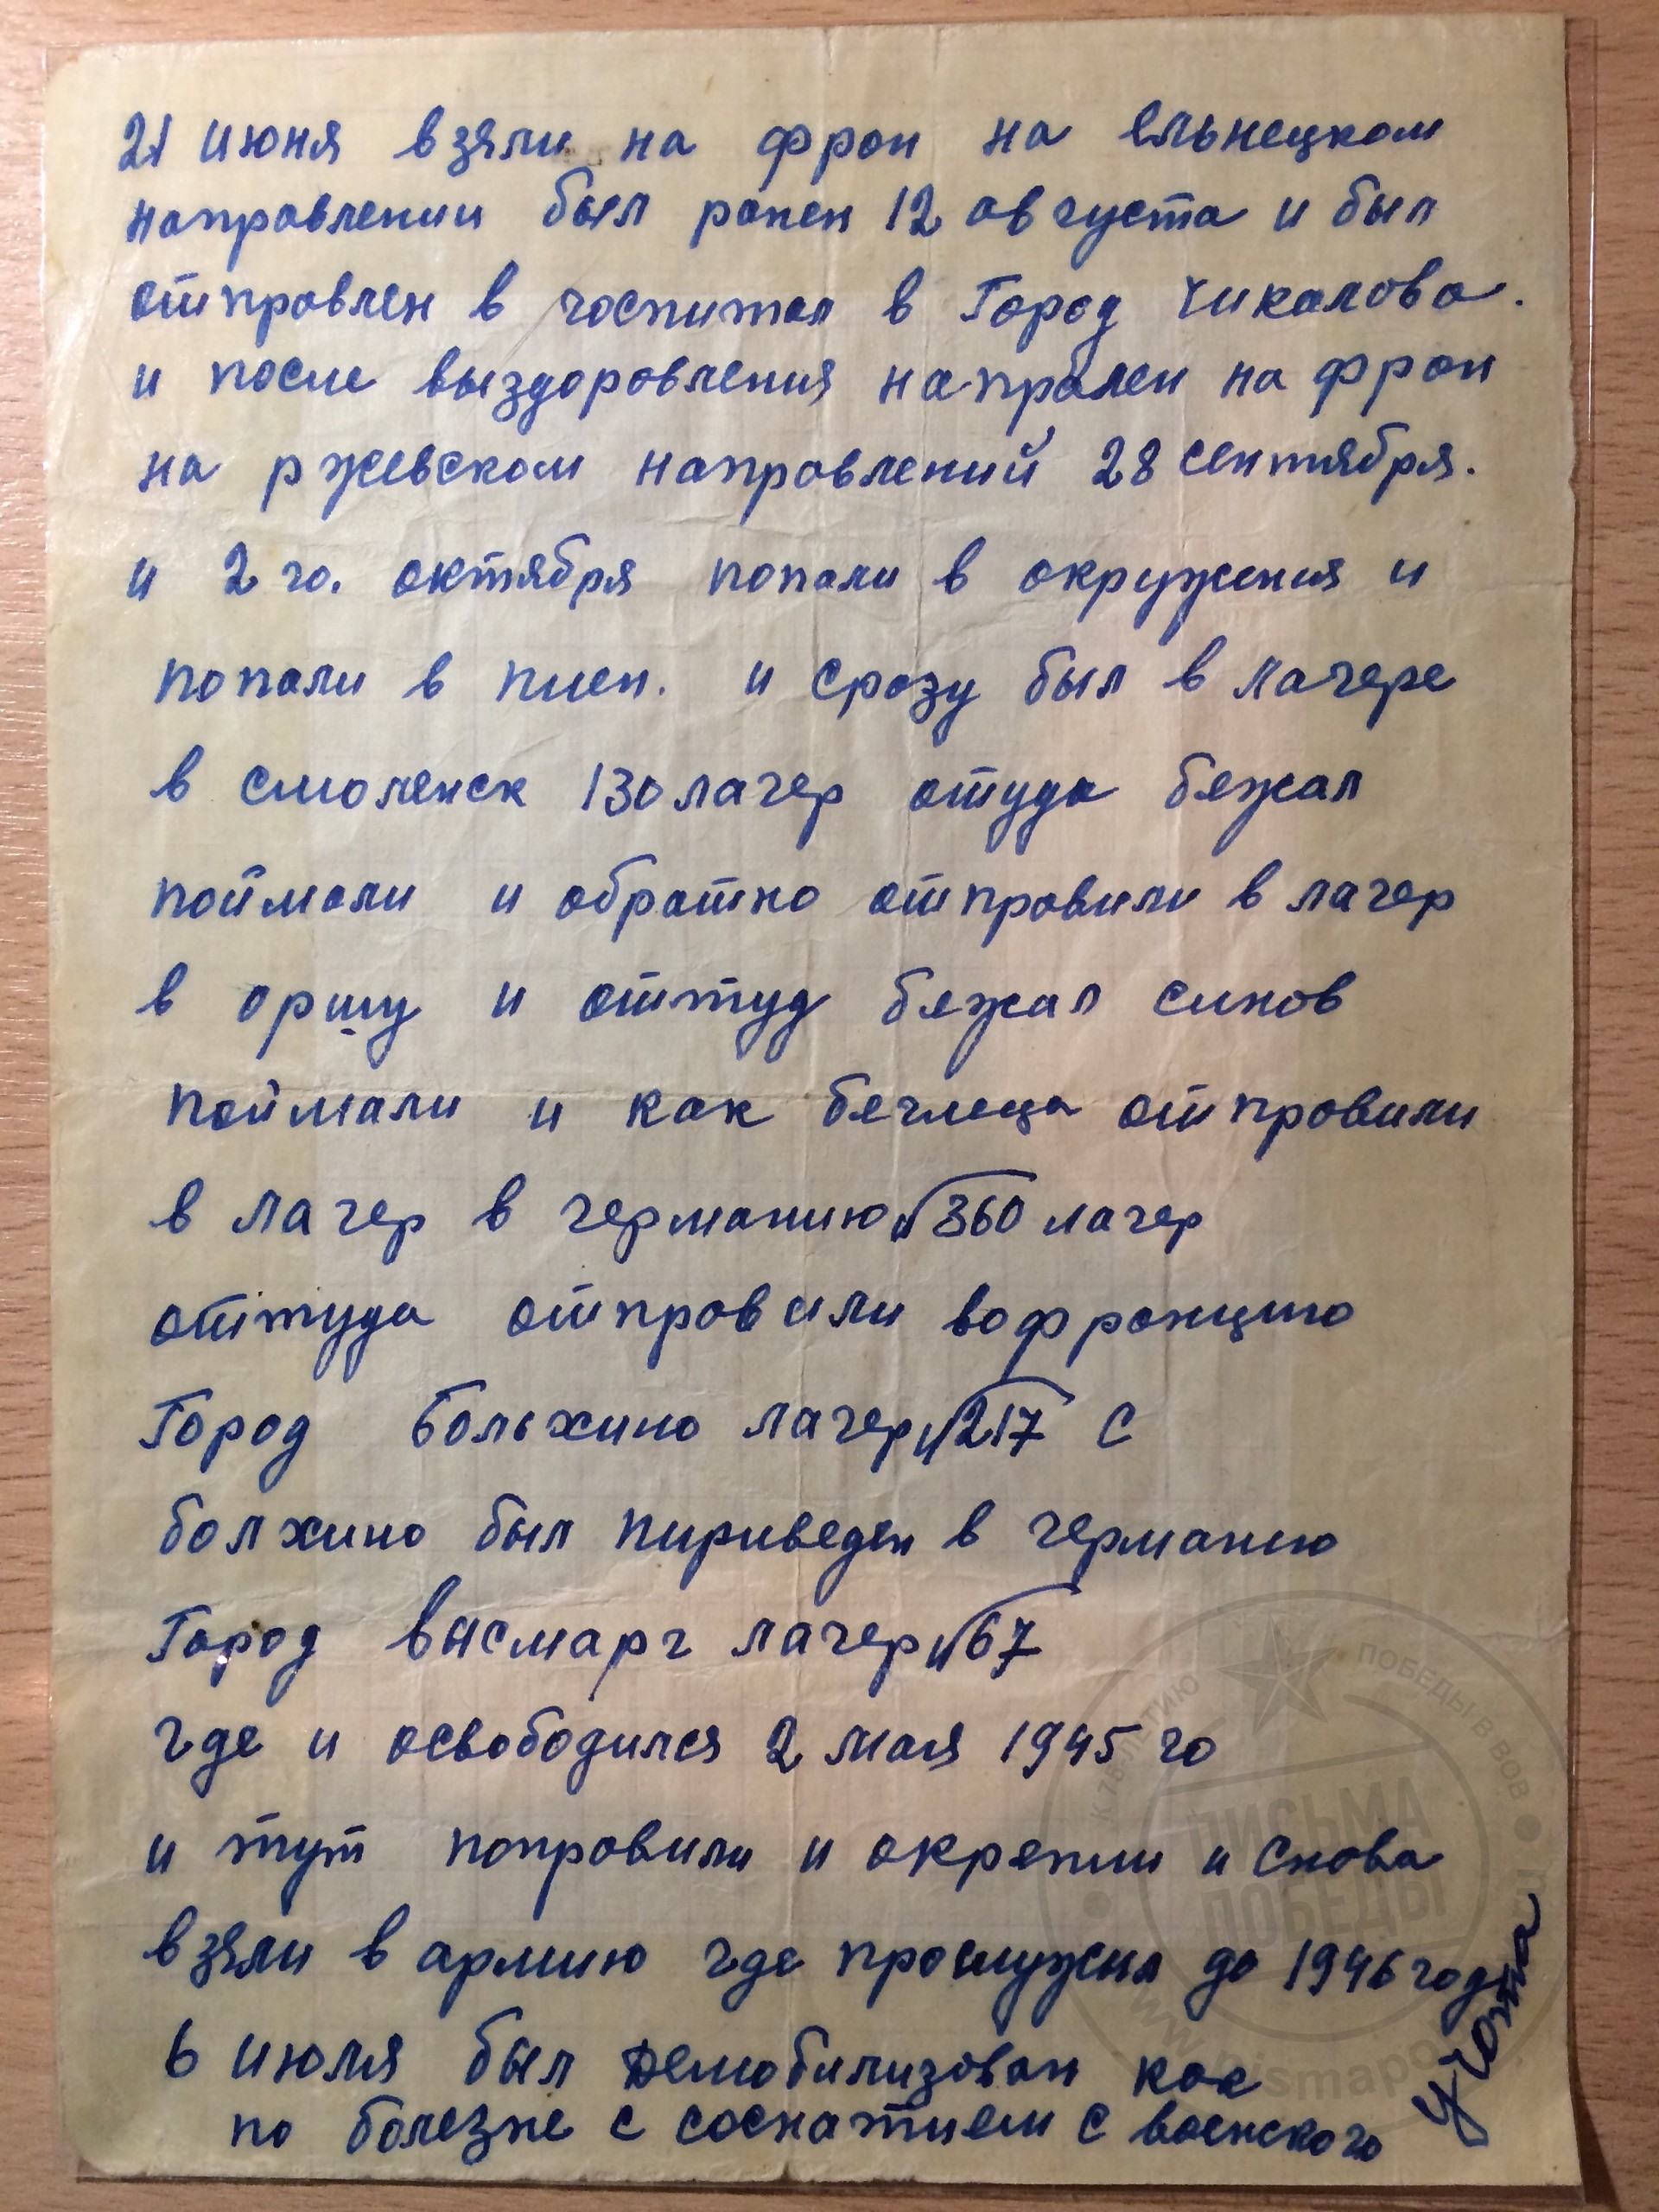 21 июня взяли на фрон на ельнецком
направлении был ранен 12 августа и был
отправлен в госпитал в Город Чикалова.
и после выздоровления напрвлен на фрон
на ржевском направлений 28 сентября.
и 2 го. октября попали в окружения и
попали в плен. и сразу был в лагере
в смоленск 130 лагер отуда бежал
поймали и обратно отправили в лагер
в оршу и оттуд бежал снов
поймали и как беглеца отправили
в лагер в германию № 360 лагер
оттуда отправили вофранцию
Город Больхино лагер № 217 С
болхино был пириведен в германию
Город висмарг лагер № 67
где и освободился 2 мая 1945 го
и тут поправили и окрепли и снова
взяли в армию где прослужил до 1946 году
6 июля был демобилизован как
по болезне с соснатием с военского
учота
К ПОБЕДЫ В ВОВ
ПИСЬМА
ПОБЕДЫ